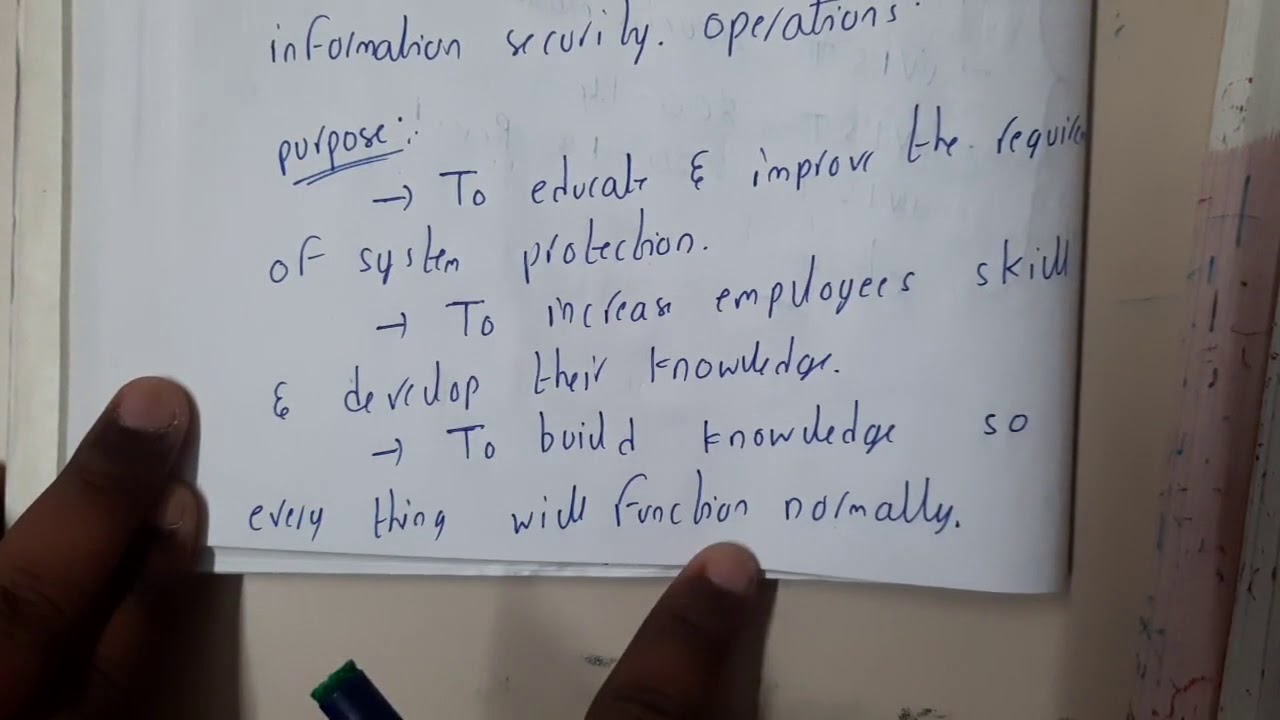 information security. operations.
purpose:
→ To educate & improve the
of system protection.
→ To increase employees skill
& develop their knowledge.
→ To build knowledge so
every thing will function normally.